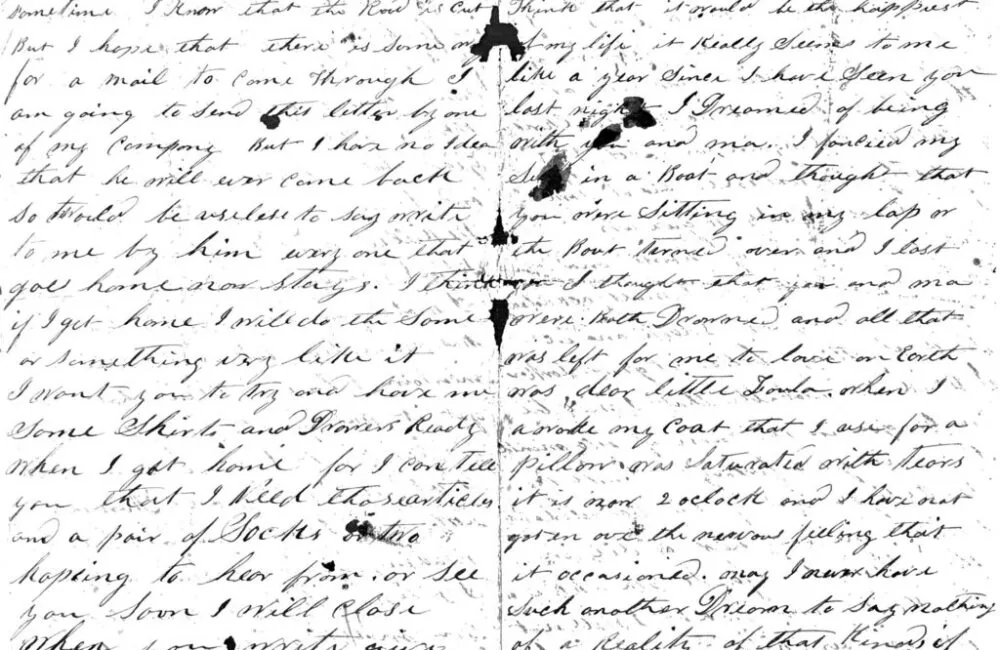 sometime I Know that the Road is cut
But I hope that there is some way
for a mail to come through I
am going to send this letter by one
of my Company But I have no Idea
that he will ever come back
so would be useless to say write
to me by him evry one that
goes home now stays. I think
if I get home I will do the Same
or something very like it
I want you to try and have me
Some Shirts and Drawers Ready
when I get home for I can tell
you that I Need those articles
and a pair of Socks or two
hopeing to hear from or see
you soon I will close
when you write give
Think that it would be the happiest
of my life it Really Seems to me
like a year Since I have Seen you
last night I Dreamed of being
with you and ma. I fancied my
Self in a Boat and thought that
you were Sitting in my lap or
the Boat turned over and I lost
you I thought that you and ma
were Both Drowned and all that
was left for me to love on Earth
was dear little Loula. when I
awoke my Coat that I use for a
pillow was Saturated with tears
it is now 2 oclock and I have not
goten over the nervous feeling that
it occasioned. may I never have
Such another Dream to Say nothing
of a Reality of that Kind if